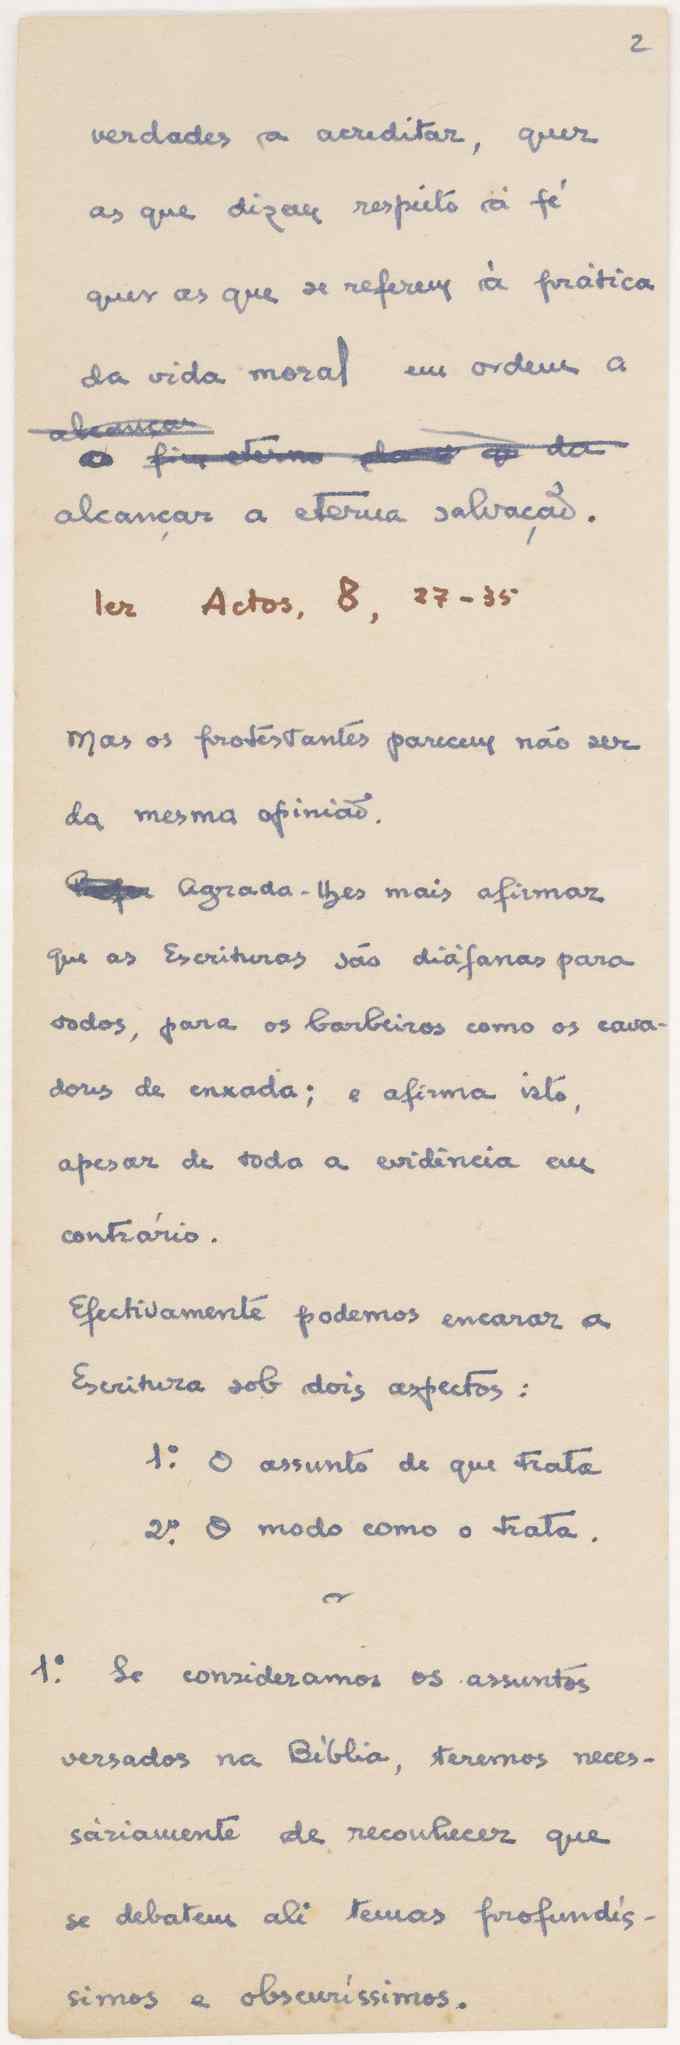 2
verdades a acreditar, quer
as que dizem respeito à fé
quer as que se referem à prática
da vida moral em ordem a
alcançar
o fim eterno da da
alcançar a eterna salvação.
ler Actos, 8, 27-35
Mas os protestantes parecem não ser
da mesma opinião.
Agrada-lhes mais afirmar
que as Escrituras são diáfanas para
todos, para os barbeiros como os cava-
dores de enxada; e afirma isto,
apesar de toda a evidência em
contrário.
Efectivamente podemos encarar a
Escritura sob dois aspectos:
1º. O assunto de que trata
2º. O modo como o trata.
~
1º. Se consideramos os assuntos
versados na Bíblia, teremos neces-
sàriamente de reconhecer que
se debatem ali temas profundís-
simos e obscuríssimos.